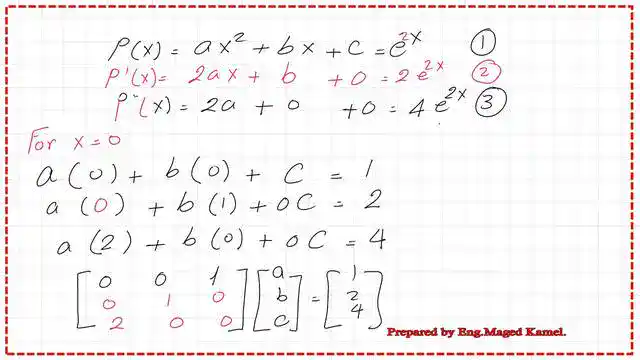 P(x) = ax² + bx + c = e^2x ①
P'(x) = 2ax + b + 0 = 2 e^2x ②
P''(x) = 2a + 0 + 0 = 4 e^2x ③
For x = 0
a (0) + b (0) + C = 1
a (0) + b (1) + 0C = 2
a (2) + b (0) + 0C = 4
[0 0 1] [a] = [1]
[0 1 0] [b] = [2]
[2 0 0] [c] = [4]
Prepared by Eng.Maged Kamel.